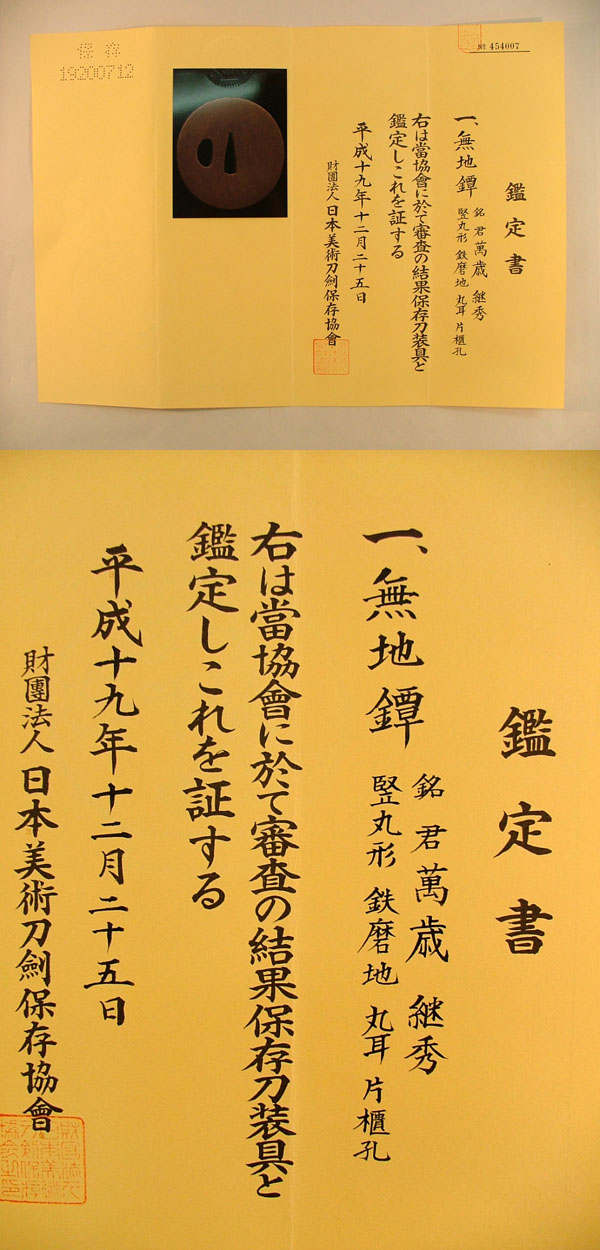 保存
19200712
№ 454007
鑑定書
一、無地鐔
銘 君萬歳 継秀
竪丸形 鉄磨地 丸耳 片櫃孔
右は當協會に於て審査の結果保存刀装具と
鑑定しこれを証する
平成十九年十二月二十五日
財團法人日本美術刀劍保存協會
鑑定書
一、無地鐔
銘 君萬歳 継秀
竪丸形 鉄磨地 丸耳 片櫃孔
右は當協會に於て審査の結果保存刀装具と
鑑定しこれを証する
平成十九年十二月二十五日
財團法人日本美術刀劍保存協會